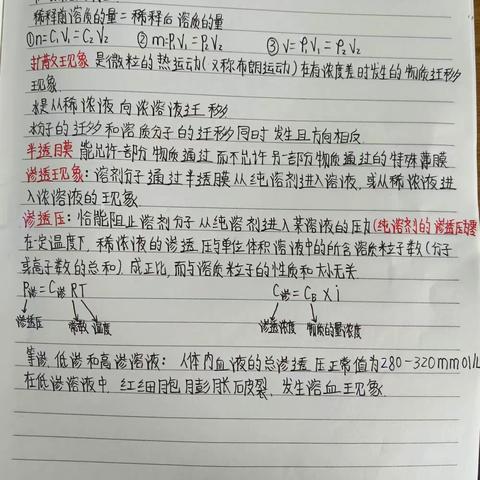 稀释前溶质的量=稀释后溶质的量
①n=C₁V₁=C₂V₂ ②m=ρ₁V₁=ρ₂V₂ ③V=ρ₁V₁=ρ₂V₂
扩散现象 是微粒的热运动(又称布朗运动)在有浓度差时发生的物质迁移
现象.
水是从稀浓液向浓溶液迁移
水分子的迁移和溶质分子的迁移同时发生且方向相反
半透膜 能允许一部分物质通过而不允许另一部分物质通过的特殊薄膜
渗透现象:溶剂分子通过半透膜从纯溶剂进入溶液,或从稀浓液进
入浓溶液的现象
渗透压:恰能阻止溶剂分子从纯溶剂进入某溶液的压力(纯溶剂的渗透压为零
在一定温度下,稀浓液的渗透压与单位体积溶液中的所含溶质粒子数(分子
或离子数的总和)成正比,而与溶质粒子的性质和大小无关
P渗=C渗RT C渗=C_B×i
渗透压 常数 温度 渗透浓度 物质的量浓度
等渗,低渗和高渗溶液:人体内血液的总渗透压正常值为280-320mmol/L
在低渗溶液中,红细胞膨胀破裂,发生溶血现象.